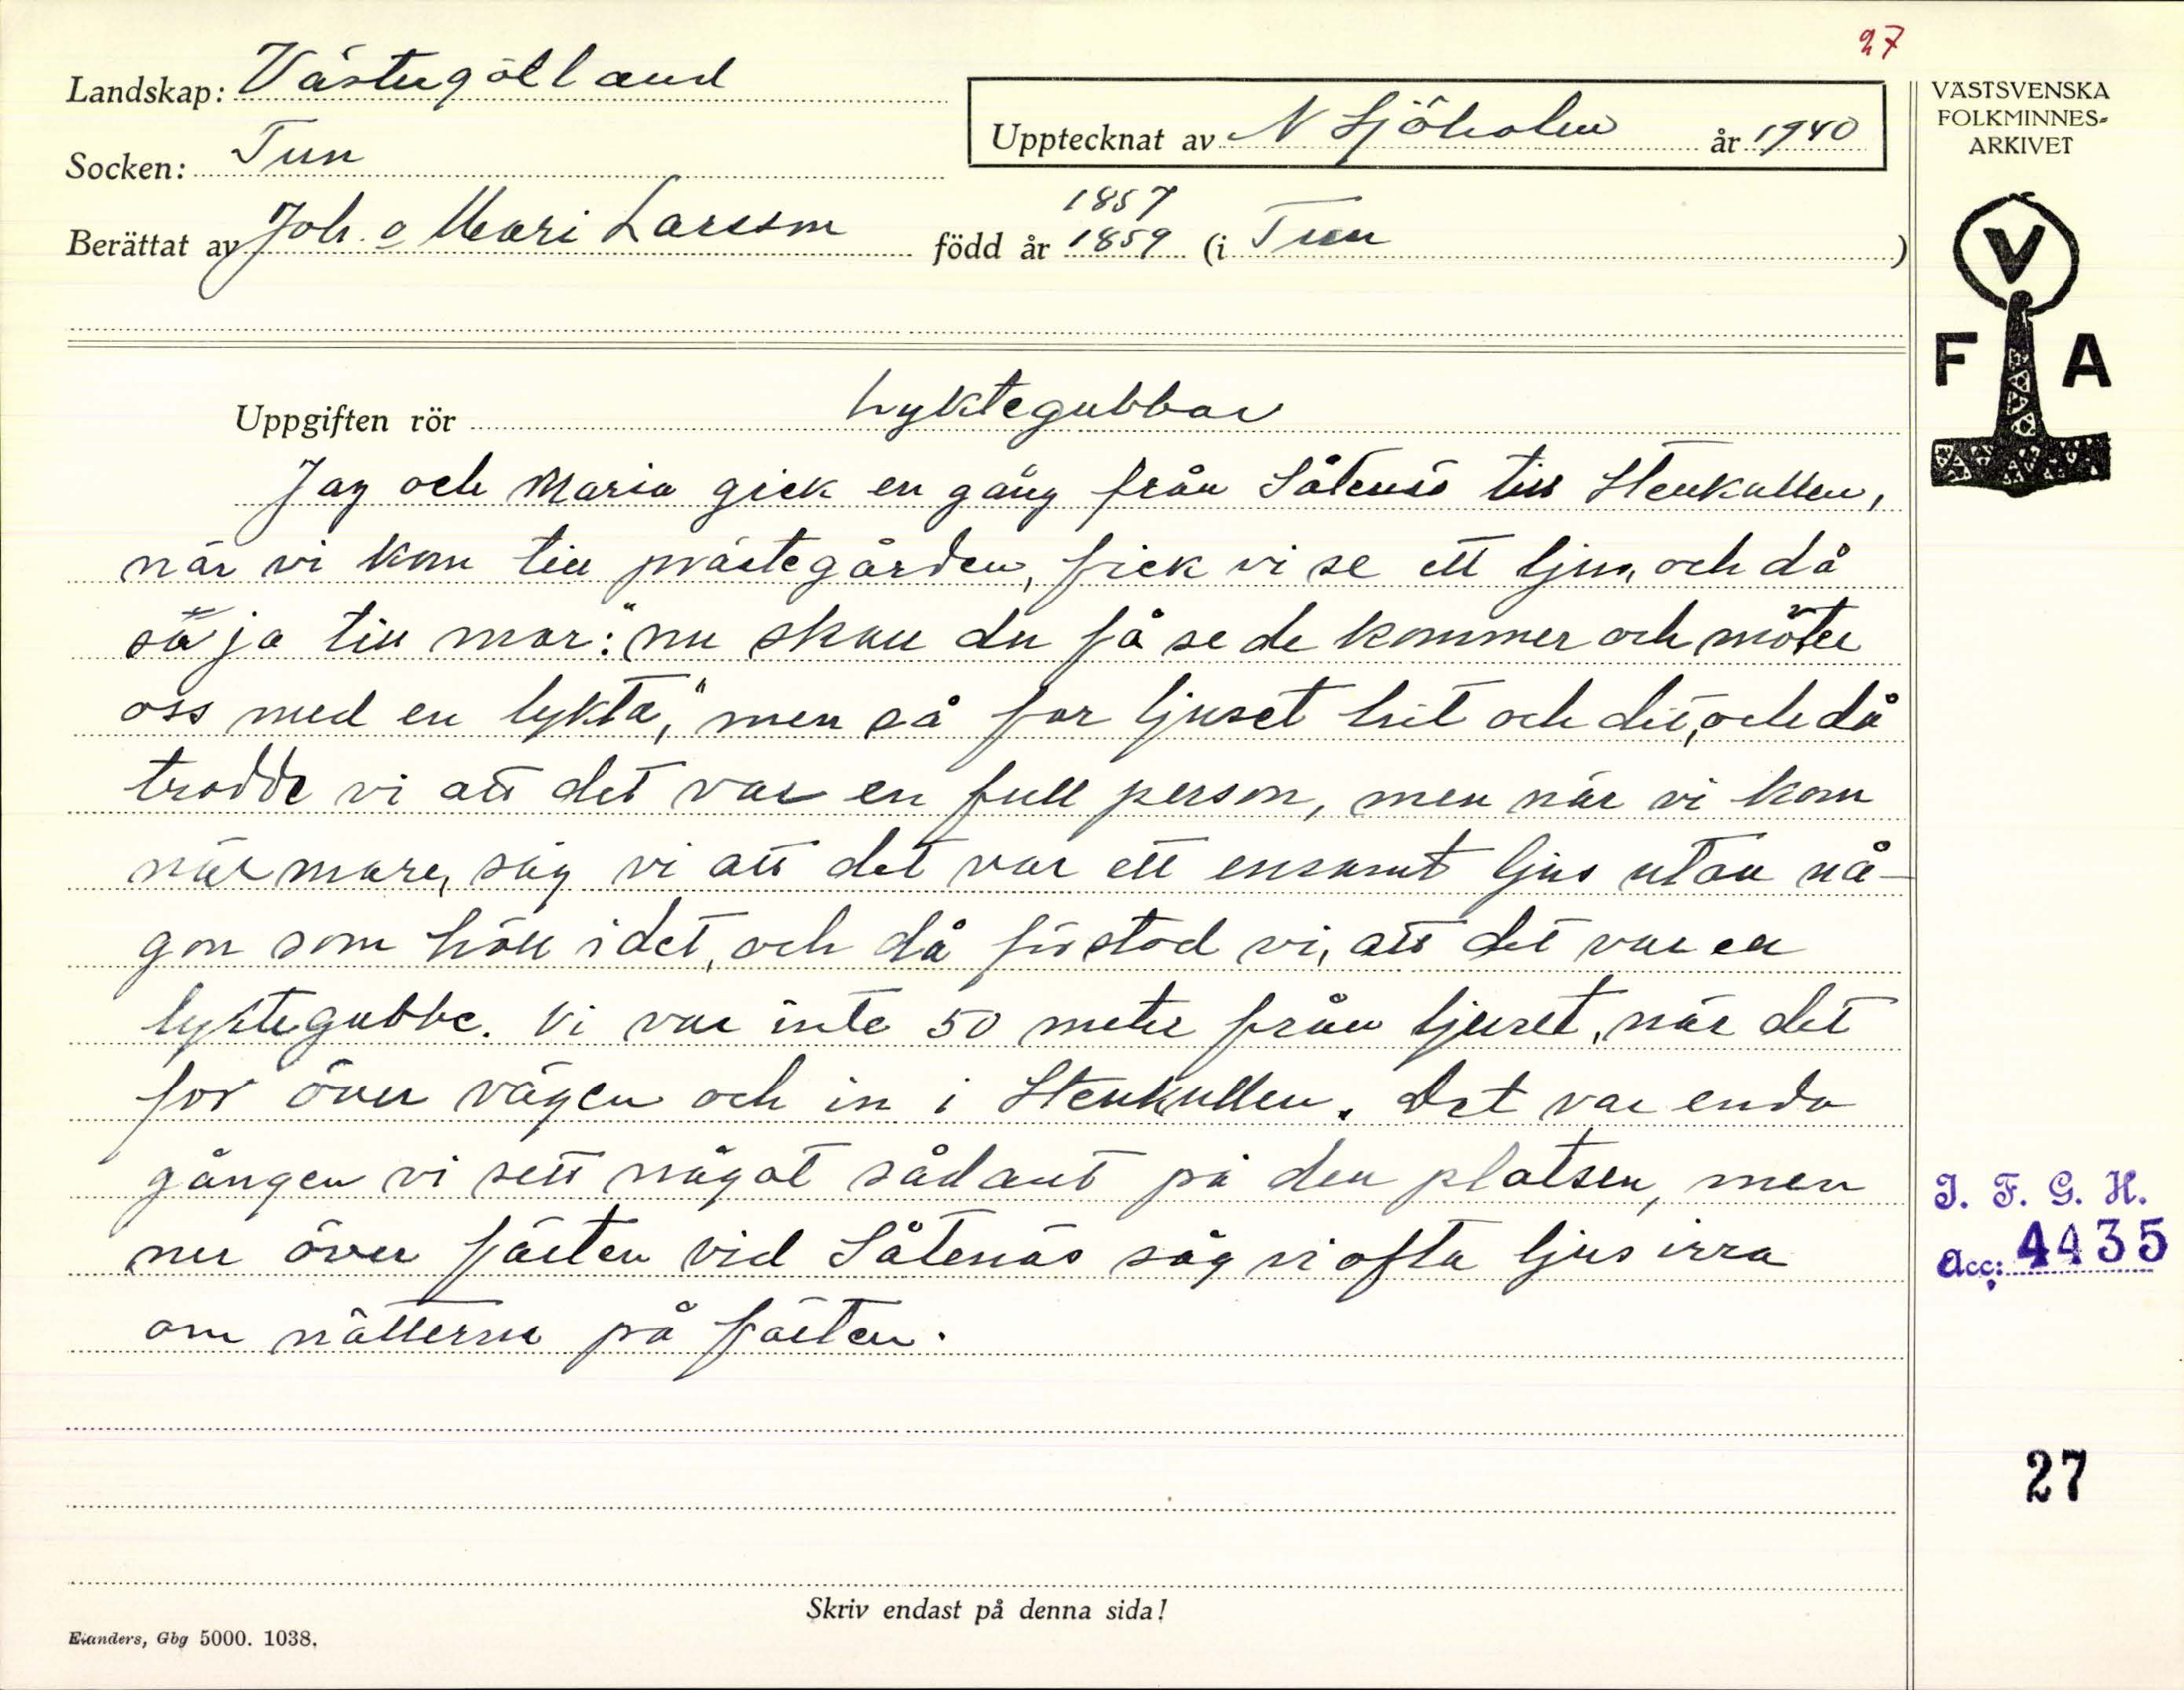 27
Landskap: Västergötland
Upptecknat av N Sjöholm år 1940
Socken: Tun
1857
Berättat av Joh. o Mari Larsson född år 1859 (i Tun )
Uppgiften rör Lyktegubbar
Jag och Maria gick en gång från Såtenäs till Stenkullen,
när vi kom till prästegården, fick vi se ett ljus, och då
sä ja till mor: "nu skall du få se de kommer och möter
oss med en lykta," men så for ljuset hit och dit, och då
trodde vi att det var en full person, men när vi kom
närmare, såg vi att det var ett ensamt ljus utan nå-
gon som höll i det, och då förstod vi, att det var en
lyktegubbe. Vi var inte 50 meter från ljuset, när det
for över vägen och in i Stenkullen. Det var enda
gången vi sett något sådant på den platsen, men
ner över fästen vid Såtenäs såg vi ofta ljus irra
om nätterna på fästen.
Skriv endast på denna sida!
Elanders, Gbg 5000. 1038.
VÄSTSVENSKA
FOLKMINNES-
ARKIVET
V
F A
I. F. G. H.
Acc: 4435
27